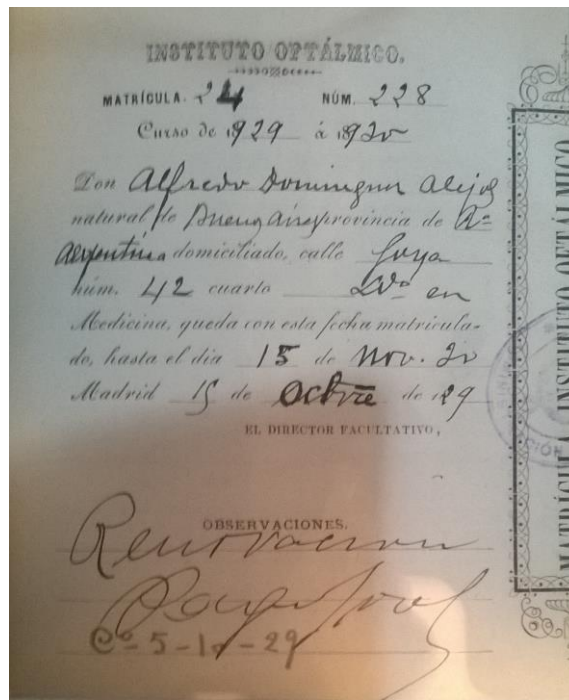 INSTITUTO OFTÁLMICO.
MATRÍCULA. 24 NÚM. 228
Curso de 1929 á 1930
Don Alfredo Dominguez Alejos
natural de Buenos Aires provincia de Ra
Argentina domiciliado, calle Goya
núm. 42 cuarto en
Medicina, queda con esta fecha matricula-
do, hasta el dia 15 de Nov. 30
Madrid 15 de Octbre de 1929
EL DIRECTOR FACULTATIVO,
OBSERVACIONES.
Renovacion
Cº-5-10-29
MATRÍCULA INSTITUTO OFTÁLMICO